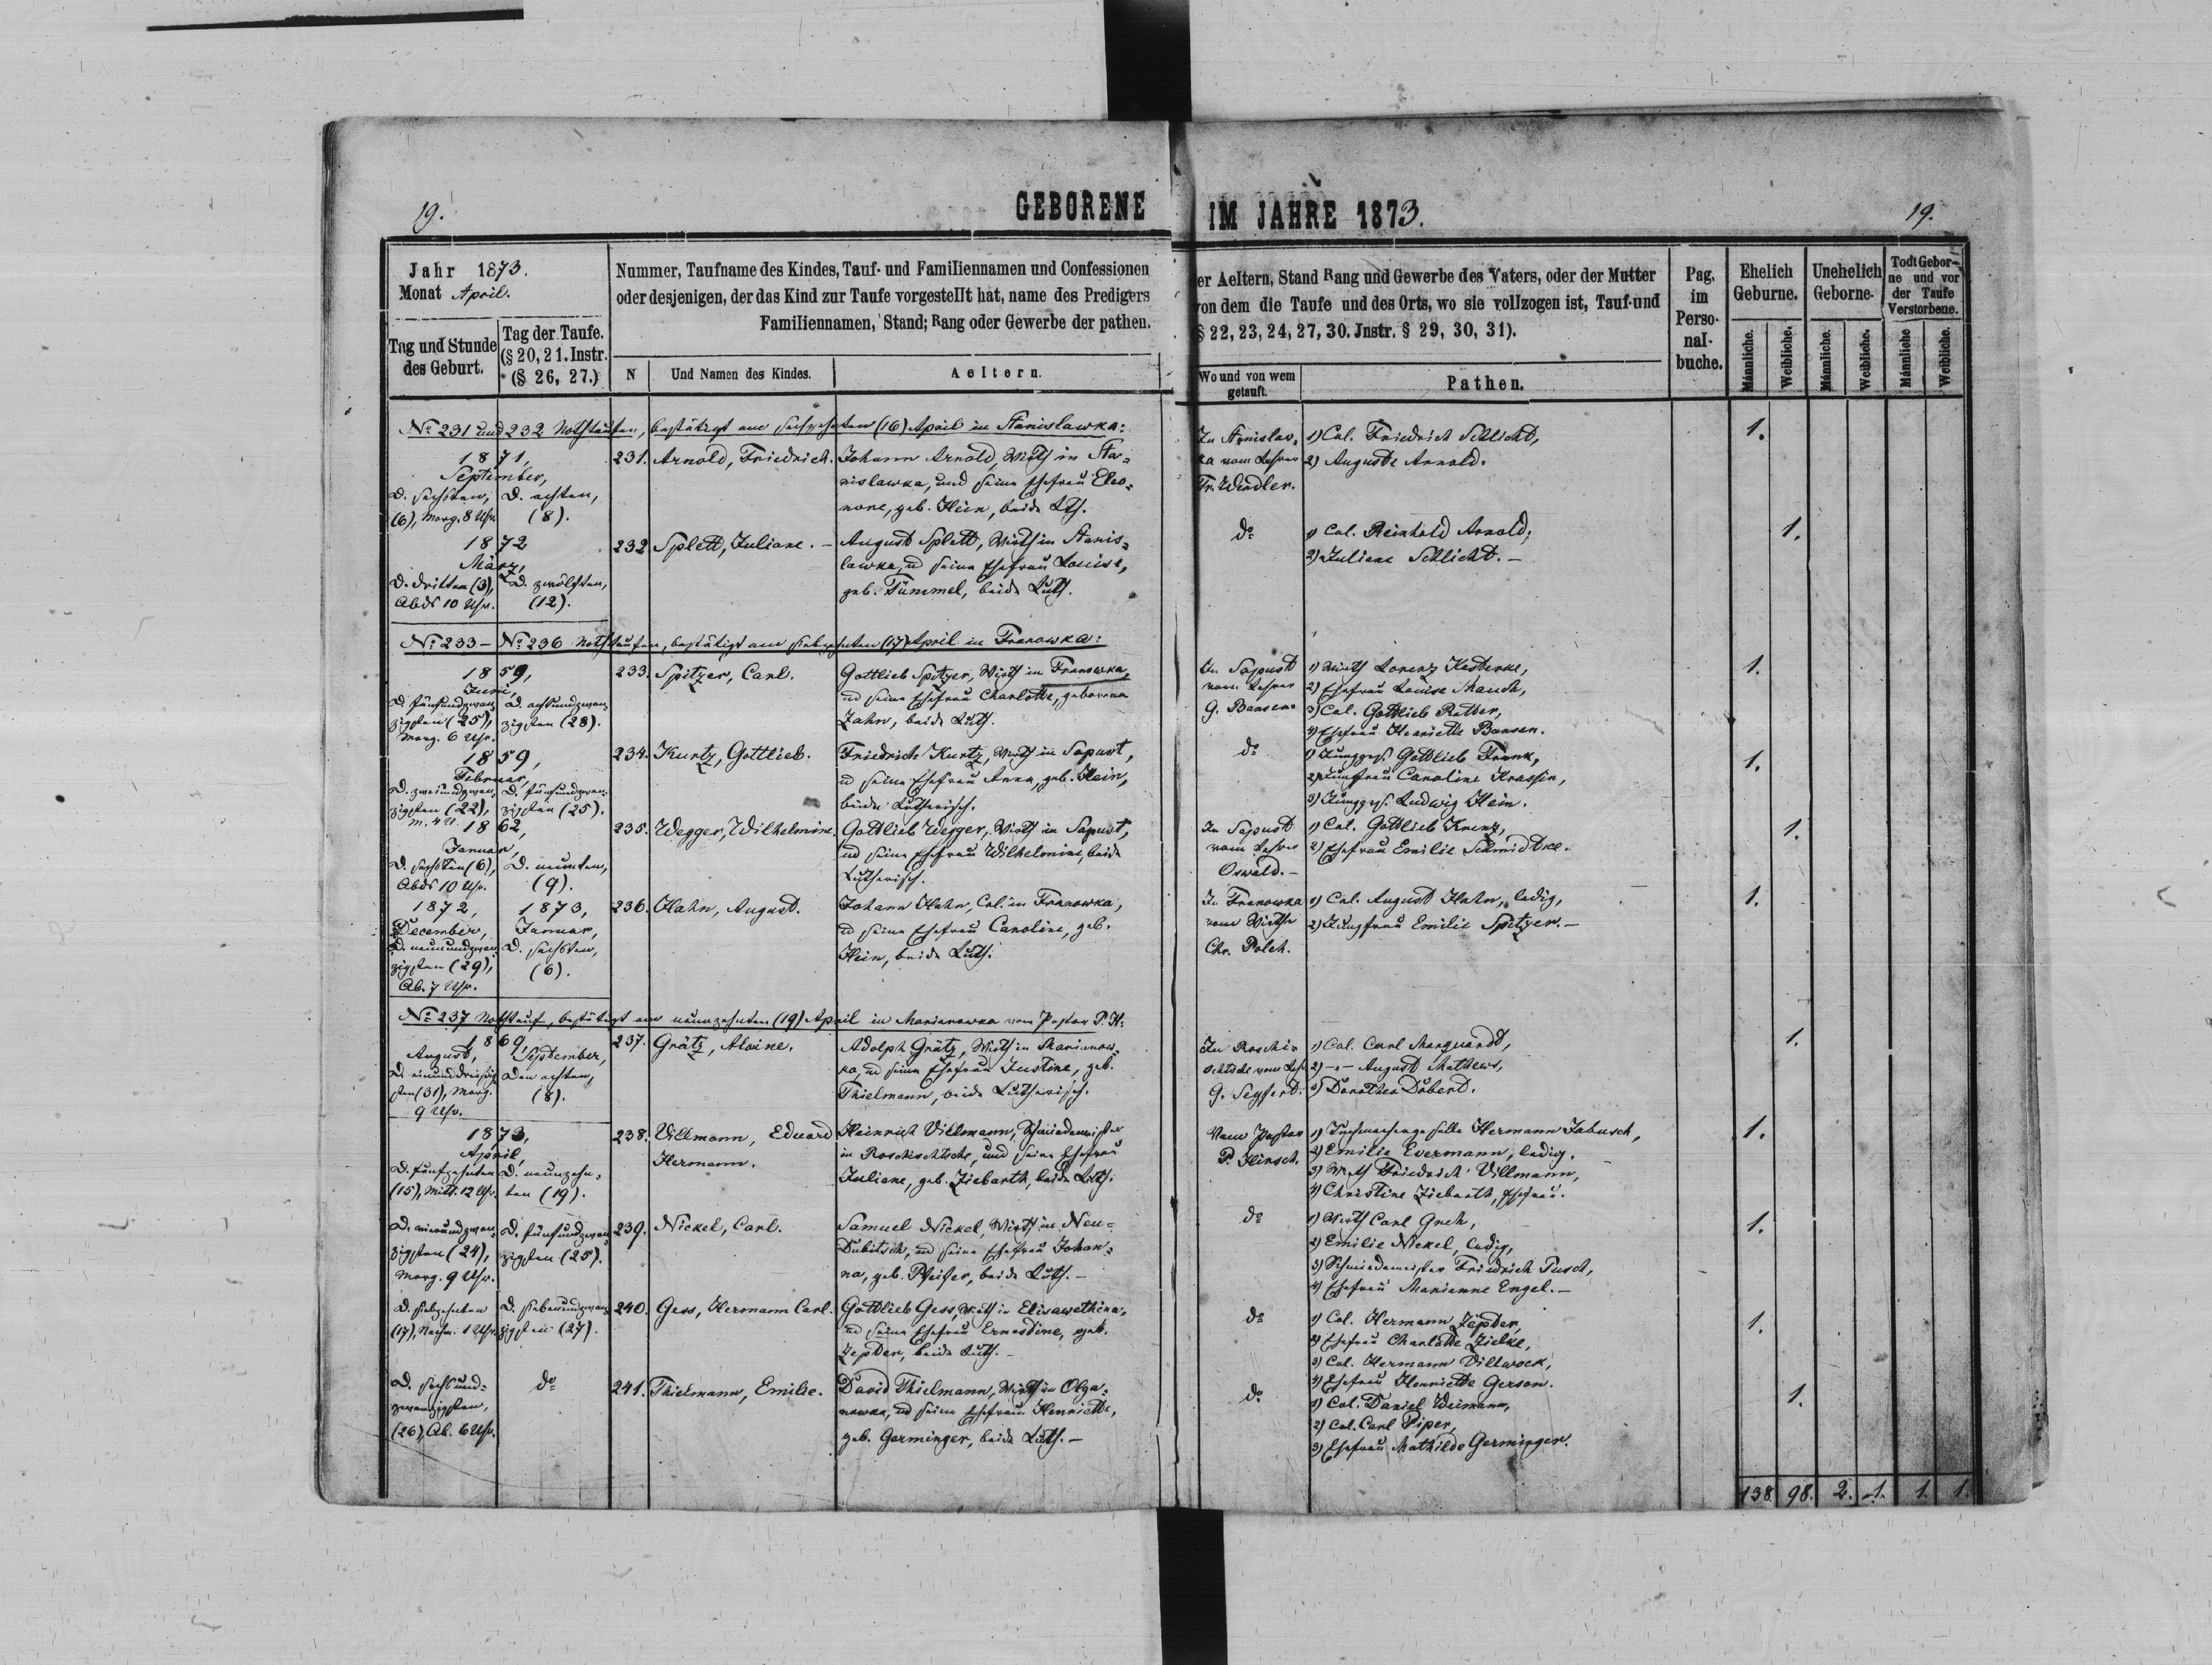 19.
GEBORENE IM JAHRE 1873.
19.
Jahr 1873.
Monat April.
Tag und Stunde des Geburt.
Tag der Taufe. (§ 20, 21. Instr. (§ 26, 27.)
Nummer, Taufname des Kindes, Tauf- und Familiennamen und Confessionen
oder desjenigen, der das Kind zur Taufe vorgestellt hat, name des Predigers
Familiennamen, Stand; Rang oder Gewerbe der pathen.
N
Und Namen des Kindes.
Aeltern.
er Aeltern, Stand Rang und Gewerbe des Vaters, oder der Mutter
von dem die Taufe und des Orts, wo sie vollzogen ist, Tauf-und
§ 22, 23, 24, 27, 30. Jnstr. § 29, 30, 31).
Wo und von wem getauft.
Pathen.
Pag. im Perso- nal- buche.
Ehelich Geburne.
Unehelich Geborne.
Todt Gebor- ne und vor der Taufe Verstorbene.
Männliche.
Weibliche.
Männliche.
Weibliche.
Männliche
Weibliche.
No 231 und 232 Nothtaufen, bestätigt am sechzehnten (16) April in Stanislawka:
1871,
September,
D. sechsten, (6), Morg. 8 Uhr.
D. achten, (8).
231. Arnold, Friedrich.
Johann Arnold, Wirth in Sta-
nislawka, und seine Ehefrau Eleo-
nore, geb. Hein, beide Lth.
In Stanislaw-
ka vom Lehrer
Fr. Wendler.
1) Col. Friedrich Schlicht,
2) Auguste Arnold.
1.
1872
März,
D. dritten (3), Abds 10 Uhr.
D. zwölften, (12).
232. Splett, Juliane.
August Splett, Wirth in Stanis-
lawka, ud seine Ehefrau Louise,
geb. Tümmel, beide Luth.
do
1) Col. Reinhold Arnold,
2) Juliane Schlicht.
1.
No 233 - No 236 Nothtaufen, bestätigt am siebzehnten (17) April in Franowka:
1859,
Juni,
D. fünfundzwan-
zigsten (25), Morg. 6 Uhr.
D. achtundzwan-
zigsten (28).
233. Spitzer, Carl.
Gottlieb Spitzer, Wirth in Franowka,
ud seine Ehefrau Charlotte, geborene
Zahn, beide Luth.
In Sapust
vom Lehrer
G. Bansen.
1) Wirth Lorenz Kesterke,
2) Ehefrau Louise Manch,
3) Col. Gottlieb Ratter,
4) Ehefrau Henriette Bansen.
1.
1859,
Februar,
D. zweiundzwan-
zigsten (22), M. 4 U.
D. fünfundzwan-
zigsten (25).
234. Kurtz, Gottlieb.
Friedrich Kurtz, Wirth in Sapust,
ud seine Ehefrau Anna, geb. Hein,
beide Lutherisch.
do
1) Junggesl. Gottlieb Frank,
2) Jungfrau Caroline Krassin,
3) Junggesl. Ludwig Hein.
1.
1862,
Januar,
D. sechsten (6), Abds 10 Uhr.
D. neunten, (9).
235. Wegger, Wilhelmine.
Gottlieb Wegger, Wirth in Sapust,
ud seine Ehefrau Wilhelmine, beide
Lutherisch.
In Sapust
vom Lehrer
Oswald.
1) Col. Gottlieb Krenz,
2) Ehefrau Emilie Schmidtke.
1.
1872,
December,
D. neunundzwan-
zigsten (29), Ab. 7 Uhr.
1873,
Januar,
D. sechsten, (6).
236. Hahn, August.
Johann Hahn, Col. in Franowka,
ud seine Ehefrau Caroline, geb.
Hein, beide Luth.
In Franowka
vom Wirthe
Chr. Polch.
1) Col. August Hahn, ledig,
2) Jungfrau Emilie Spitzer.
1.
No 237 Nothtaufe, bestätigt am neunzehnten (19) April in Marianowka vom Pastor P. H:
1869,
August,
D. einunddreissig-
sten (31), Morg. 9 Uhr.
September,
Den achten, (8).
237. Grätz, Alvine.
Adolph Grätz, Wirth in Marianow-
ka, ud seine Ehefrau Justine, geb.
Thielmann, beide Lutherisch.
In Roschi-
schtsche vom Leh.
G. Seyferd.
1) Col. Carl Marquardt,
2) -"- August Mathews,
3) Dorothea Dobert.
1.
1873,
April,
D. fünfzehnten (15), Mitt. 12 Uhr.
D. neunzehn-
ten (19).
238. Villmann, Eduard
Hermann.
Heinrich Villmann, Schmiedemeister
in Roschischtsche, und seine Ehefrau
Juliane, geb. Ziebarth, beide Luth.
Vom Pastor
P. Hinsch.
1) Tuchmachergeselle Hermann Jabusch,
2) Emilie Evermann, ledig.
3) Wirth Friedrich Villmann,
4) Christine Ziebarth, Ehefrau.
1.
D. vierundzwan-
zigsten (24), Morg. 9 Uhr.
D. fünfundzwan-
zigsten (25).
239. Nickel, Carl.
Samuel Nickel, Wirth in Neu-
Dubitsch, ud seine Ehefrau Johan-
na, geb. Pfeifer, beide Luth.
do
1) Wirth Carl Greh,
2) Emilie Nickel, ledig,
3) Schmiedemeister Friedrich Pusch,
4) Ehefrau Marianne Engel.
1.
D. siebzehnten (17), Nachm. 1 Uhr.
D. siebenundzwan-
zigsten (27).
240. Gess, Hermann Carl.
Gottlieb Gess, Wirth in Elisawethina,
ud seine Ehefrau Ernestine, geb.
Zepter, beide Luth.
do
1) Col. Hermann Zepter,
2) Ehefrau Charlotte Zielke,
3) Col. Hermann Villwock,
4) Ehefrau Henriette Gerson.
1.
D. sechsund-
zwanzigsten,
(26), Ab. 6 Uhr.
do
241. Thielmann, Emilie.
David Thielmann, Wirth in Olga-
nowka, ud seine Ehefrau Henriette,
geb. Germinger, beide Luth.
do
1) Col. Daniel Weimann,
2) Col. Carl Piper,
3) Ehefrau Mathilde Germinger.
1.
138. 98. 2. 1. 1. 1.